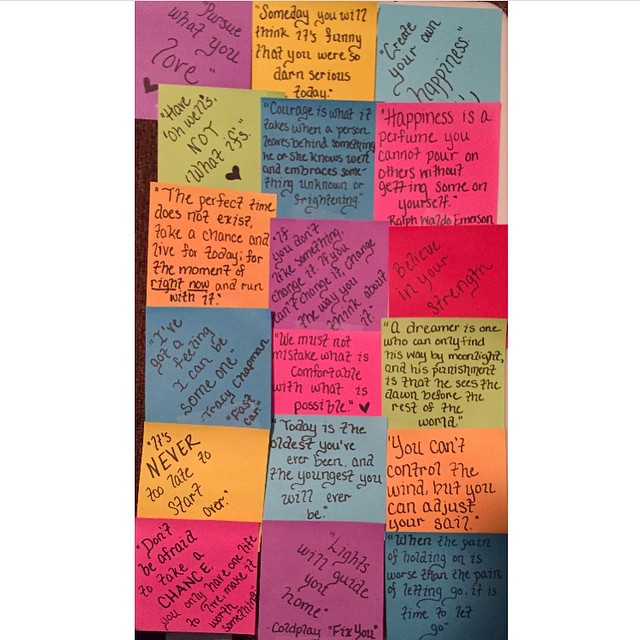 "Pursue
what you
love"
"Someday you will
think it's funny
that you were so
darn serious
today."
"Create
your own
happiness."
"Have
'oh wells',
NOT
'What ifs'."
"Courage is what it
takes when a person
leaves behind something
he or she knows well
and embraces some-
thing unknown or
frightening."
"Happiness is a
perfume you
cannot pour on
others without
getting some on
yourself."
Ralph Waldo Emerson
"The perfect time
does not exist,
take a chance and
live for today; for
the moment of
right now and run
with it."
"If
you don't
like something,
change it. If you
can't change it, change
the way you
think about
it."
Believe
in your
strength
"I've
got a
feeling
I can be
some one"
Tracy Chapman
"Fast
car."
"We must not
mistake what is
comfortable
with what is
possible."
"A dreamer is one
who can only find
his way by moonlight,
and his punishment
is that he sees the
dawn before the
rest of the
world."
"It's
NEVER
too late to
start
over."
"Today is the
oldest you've
ever been, and
the youngest you
will ever
be."
"You can't
control the
wind, but you
can adjust
your sail."
"Don't
be afraid
to take a
CHANCE.
you only have one life
to live, make it
worth
something."
"Lights
will guide
you
home"
-Coldplay "Fix You"
"When the pain
of holding on is
worse than the pain
of letting go, it is
time to let
go"